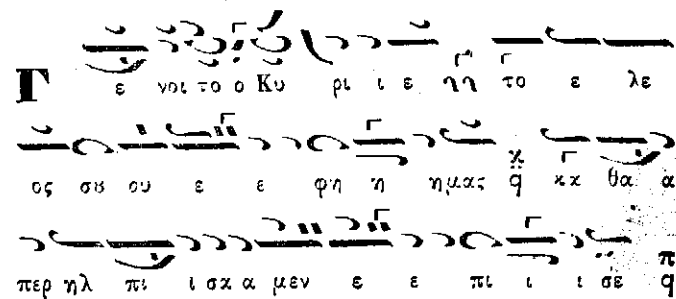 Γ ε νοι το ο Κυ ρι ι ε ηη το ε λε
ος σου ου ε ε φη η ημας ϗ q κα θα α
περ ηλ πι ι σα α μεν ε ε πι ι ι σε π q